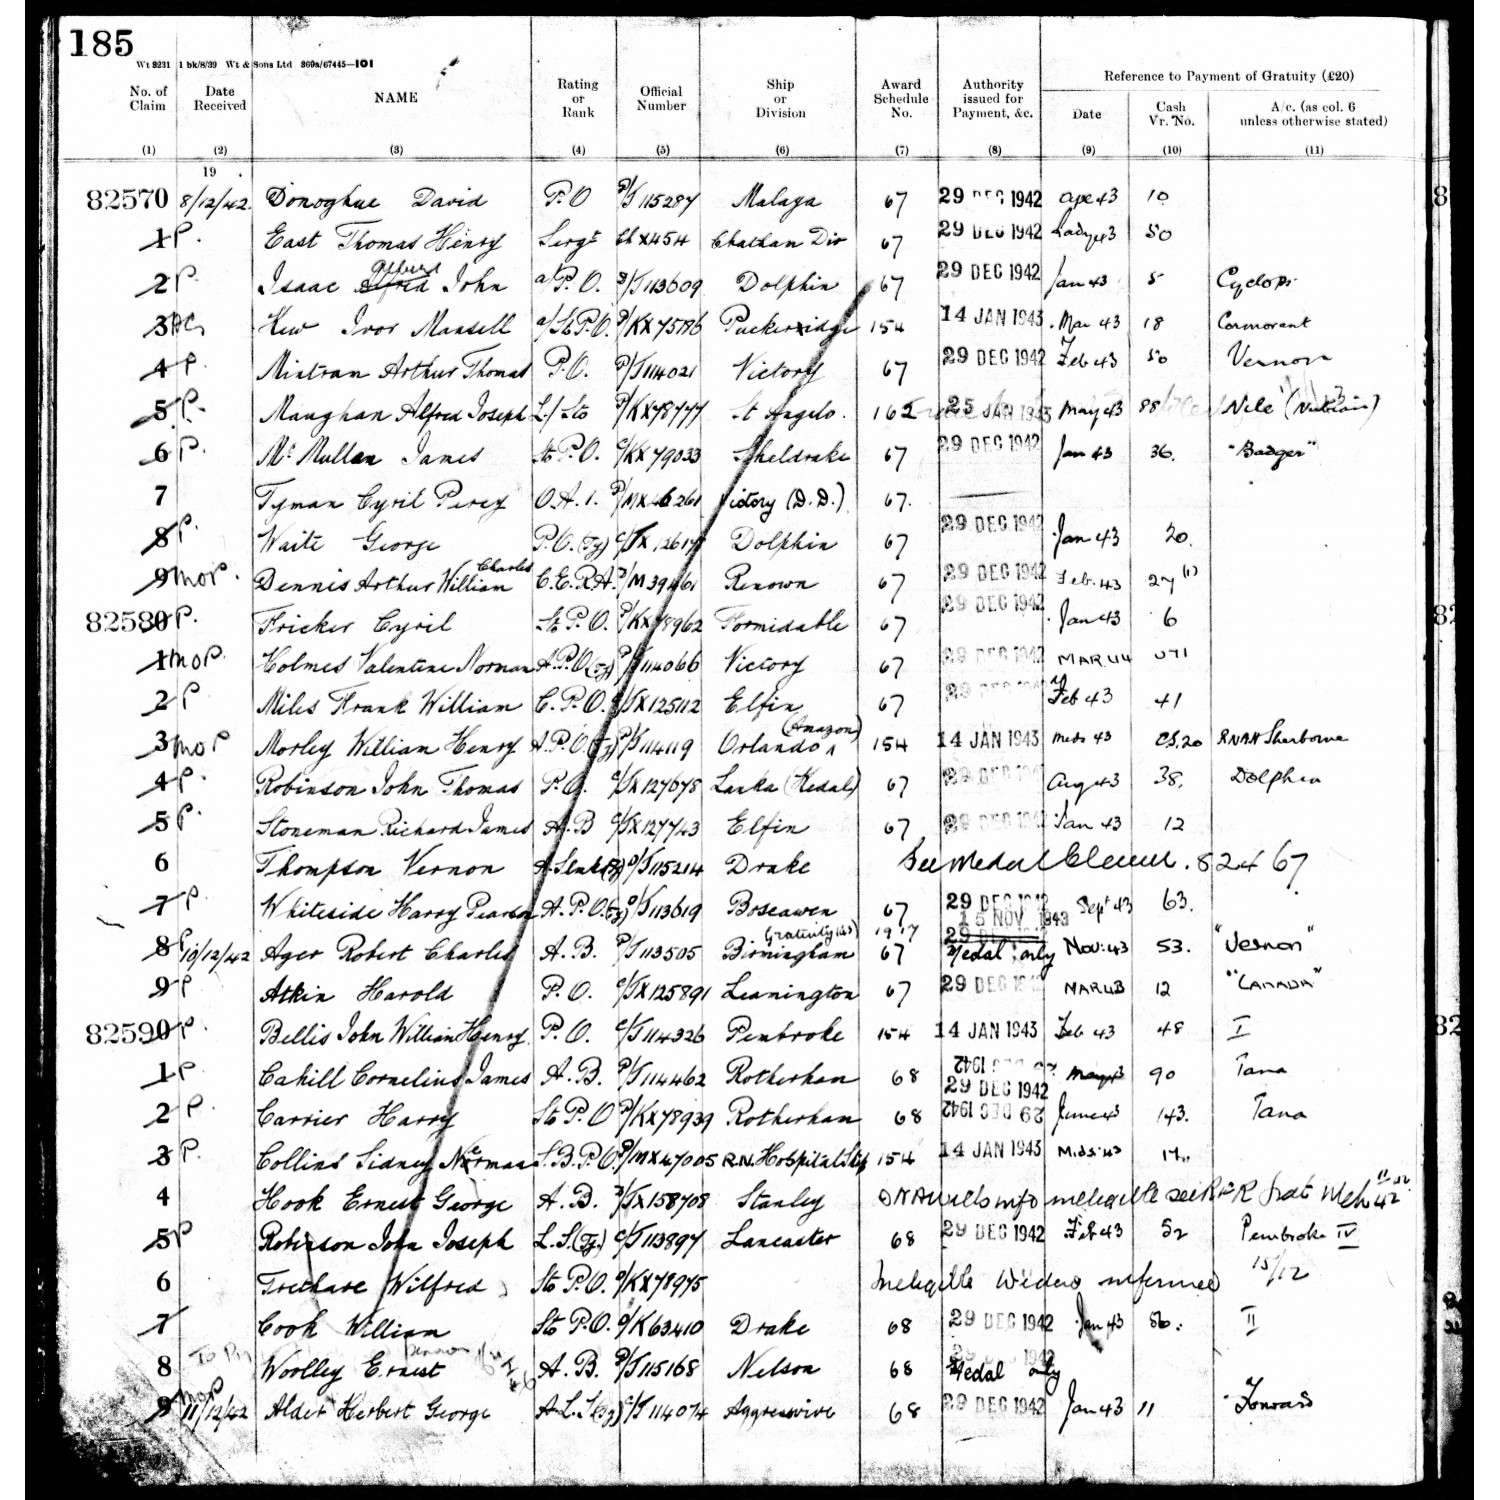 185
Wt 8231 1 bk/8/39 Wt & Sons Ltd 369a/67445—101
No. of Claim Date Received NAME Rating or Rank Official Number Ship or Division Award Schedule No. Authority issued for Payment, &c. Reference to Payment of Gratuity (£20)
Date Cash Vr. No. A/c. (as col. 6 unless otherwise stated)
(1) (2) (3) (4) (5) (6) (7) (8) (9) (10) (11)
19
82570 8/12/42 Donoghue David P.O P/J115287 Malaga 67 29 DEC 1942 Apr 43 10
1 P. East Thomas Henry Sergt Ch X454 Chatham Div 67 29 DEC 1942 50
2 P. Isaac Alfred John a/P.O. J113609 Dolphin 67 29 DEC 1942 Jan 43 5 Cyclops
3 Kew Ivor Mansell a/St.P.O. P/KX75186 Puckeridge 154 14 JAN 1943 Mar 43 18 Cormorant
4 P. Mintram Arthur Thomas P.O. P/J114021 Victory 67 29 DEC 1942 Feb 43 50 Vernon
5 P. Maughan Alfred Joseph L/Sto P/KX78777 St Angelo. 162 25 JAN 1943 May 43 88 Nile
6 P. Mc Mullan James St P.O. C/KX79033 Sheldrake 67 29 DEC 1942 Jan 43 36. "Badger"
7 Tyman Cyril Percy O.A.1. P/MX46261 Victory (D.D.) 67.
8 P. Waite George P.O.(Ty) 12617 Dolphin 67 29 DEC 1942 Jan 43 20.
9 MOP. Dennis Arthur William Charles C.E.R.A. P/M39461 Renown 67 29 DEC 1942 Feb. 43 27 (1)
82580 P. Fricker Cyril St P.O. P/KX78962 Formidable 67 29 DEC 1942 Jan 43 6
1 MOP. Holmes Valentine Norman A.P.O(Ty) P/J114066 Victory 67 29 DEC 1942 MAR 44 071
2 P Miles Frank William C.P.O. JX125112 Elfin 67 29 DEC 1942 Feb 43 41
3 MOP Morley William Henry A.P.O.(Ty) P/J114119 Orlando (Amazon) 154 14 JAN 1943 43 CS.20 RNAH Sherborne
4 P. Robinson John Thomas P.O. C/JX127678 Lanka (Kedah) 67 29 DEC Aug 43 38. Dolphin
5 P. Stoneman Richard James A.B JX127743 Elfin 67 29 DEC 1942 Jan 43 12
6 Thompson Vernon D/J115214 Drake See Medal 82467
7 P. Whiteside Harry Pearson A.P.O.(Ty) J113619 Boscawen 67 29 DEC 1942 Sept 43 63.
15 NOV 1943
8 P 10/12/42 Ager Robert Charles A.B. P/J113505 Birmingham Gratuity 1917 67 29 DEC Medal only Nov: 43 53. "Vernon"
9 P Atkin Harold P.O. C/JX125891 Leamington 67 29 DEC 1942 MAR 43 12 "CANADA"
82590 P. Bellis John William Henry P.O. C/J114326 Pembroke 154 14 JAN 1943 Feb 43 48 I
1 P Cahill Cornelius James A.B. P/J114462 Rotherham 68 29 DEC 1942 May 43 90 Tana
2 P. Carrier Harry St P.O P/KX78939 Rotherham 68 29 DEC 1942 June 43 143. Tana
3 P. Collins Sidney Norman S.B.P.O. P/MX47005 R.N. Hospital Ship 154 14 JAN 1943 17.
4 Hook Ernest George A.B. JX158708 Stanley
5 P Robinson John Joseph L.S.(Ty.) C/J113897 Lancaster 68 29 DEC 1942 Feb 43 52 Pembroke IV
6 Trethare Wilfred St P.O. D/KX78975 Ineligible Widow informed 15/12
7 Cook William St P.O. D/K63410 Drake 68 29 DEC 1942 Jan 43 86. II
8 Woolley Ernest A.B. P/J115168 Nelson 68 Medal only
9 MOP 11/12/42 Alder Herbert George A.L.S(Ty) C/J114074 Aggressive 68 29 DEC 1942 Jan 43 11 Forward